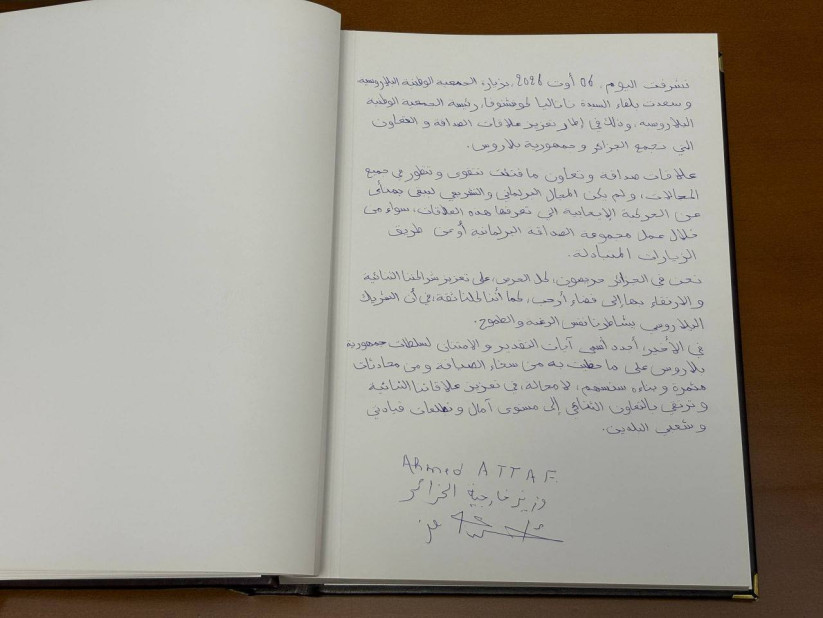 تشرفت اليوم، 06 أوت 2026، بزيارة الجمعية الوطنية البلاروسية
و سعدت بلقاء السيدة ناتاليا كوتشانوفا، رئيسة الجمعية الوطنية
البلاروسية، وذلك في إطار تعزيز علاقات الصداقة و التعاون
التي تجمع الجزائر و جمهورية بلاروس.
علاقات صداقة و تعاون ما فتئت تتقوى و تتطور في جميع
المجالات، و لم يكن المجال البرلماني و التشريعي ليبقى بمنأى
عن الحركية الإيجابية التي تعرفها هذه العلاقات، سواء من
خلال عمل مجموعة الصداقة البرلمانية أو عن طريق
الزيارات المتبادلة.
نحن في الجزائر حريصون، كل الحرص، على تعزيز شراكتنا الثنائية
و الارتقاء بها إلى فضاء أرحب، كما أننا كلنا ثقة، في أن الشريك
البلاروسي يشاطرنا نفس الرغبة و الطموح.
في الأخير، أجدد أسمى آيات التقدير و الامتنان لسلطات جمهورية
بلاروس على ما حظيت به من سخاء الضيافة و من محادثات
مثمرة و بناءة ستسهم، لا محالة، في تعزيز علاقاتنا الثنائية
و ترتقي بالتعاون الثنائي إلى مستوى آمال و تطلعات قيادتي
و شعبي البلدين.
Ahmed ATTAF
وزير خارجية الجزائر